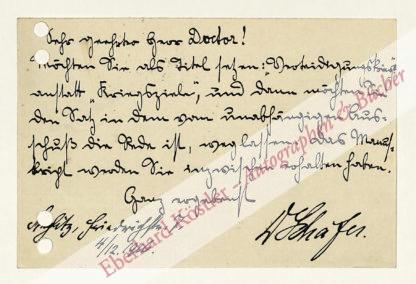 Sehr geehrter Herr Doctor!
Möchten Sie als Titel setzen: Verteidigungskrieg
anstatt „Kriegsziele", und dann möchten Sie
den Satz in dem vom unabhängigen Aus-
schuß die Rede ist, weglassen. Das Manus-
kript werden Sie inzwischen erhalten haben.
Ganz ergebenst
4/12.
D Schäfer.
Eberhard Köstler – Autographen & Bücher